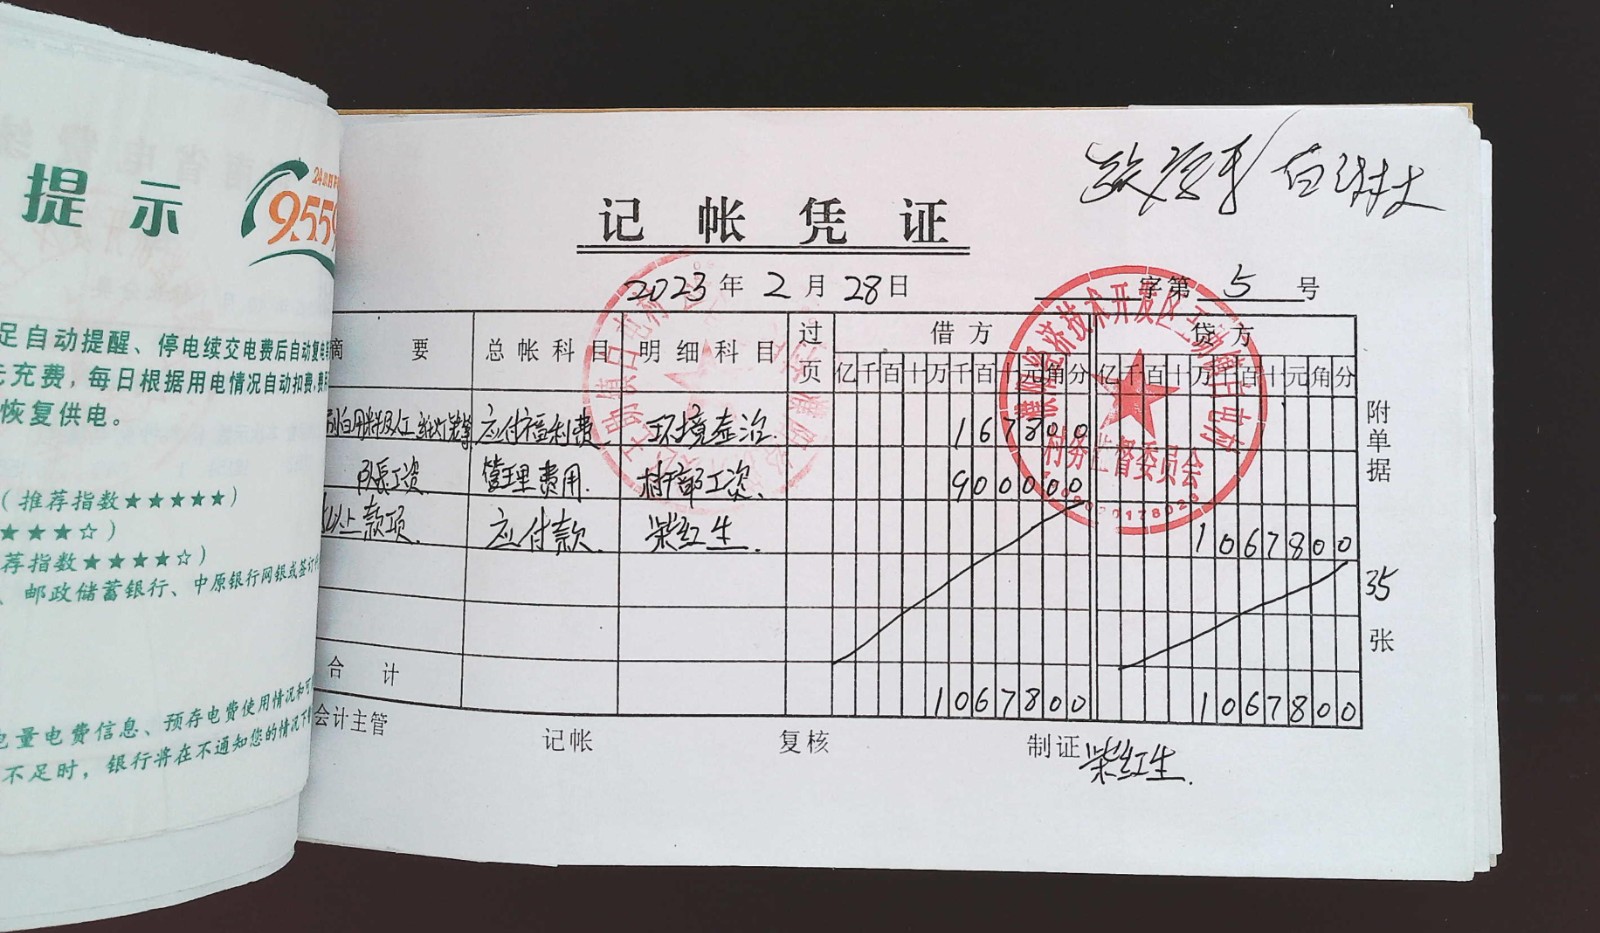 提 示
24小时
9559
足自动提醒、停电续交电费后自动复电
充费，每日根据用电情况自动扣费，费
恢复供电。
（推荐指数★★★★★）
★★★☆）
荐指数★★★★☆）
、邮政储蓄银行、中原银行网银或签订
电量电费信息、预存电费使用情况和可
不足时，银行将在不通知您的情况下
记 帐 凭 证
2023年 2月 28日
字第 5 号
摘 要 总帐科目 明细科目 过页 借方 贷方
亿千百十万千百十元角分 亿千百十万千百十元角分
应付福利费 环境整治 167800
队长工资 管理费用 村干部工资 900000
以上款项 应付款 柴红生 1067800
合 计 1067800 1067800
附单据 35 张
会计主管 记帐 复核 制证 柴红生
濮阳经济技术开发区王助镇占屯村
村务监督委员会